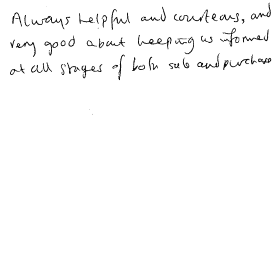 Always helpful and courteous, and
very good about keeping us informed
at all stages of both sale and purchase